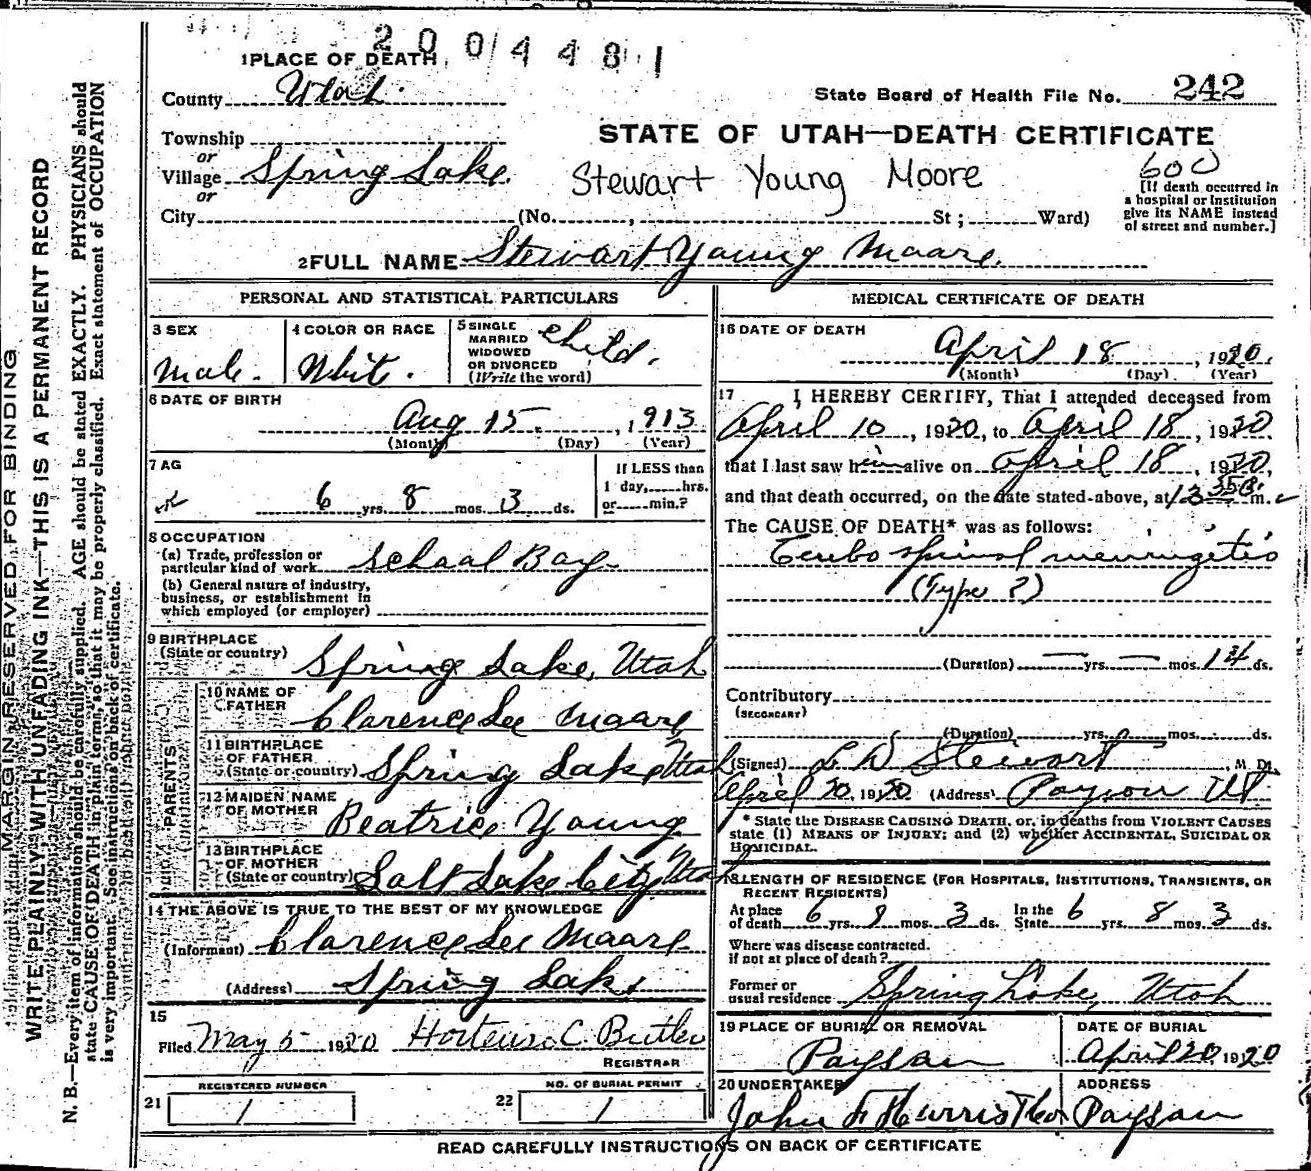 2004481
1 PLACE OF DEATH
County Utah
State Board of Health File No. 242
Township
or
Village Spring Lake
or
STATE OF UTAH—DEATH CERTIFICATE
Stewart Young Moore
600
[If death occurred in
a hospital or institution
give its NAME instead
of street and number.]
City (No. , St ; Ward)
2 FULL NAME Stewart Young Moore.
PERSONAL AND STATISTICAL PARTICULARS
3 SEX
Male.
4 COLOR OR RACE
White.
5 SINGLE
MARRIED
WIDOWED
OR DIVORCED
(Write the word)
Child.
6 DATE OF BIRTH
Aug 15 , 1913
(Month) (Day) (Year)
7 AG
6 yrs. 8 mos. 3 ds.
If LESS than
1 day, hrs.
or min.?
8 OCCUPATION
(a) Trade, profession or
particular kind of work School Boy
(b) General nature of industry,
business, or establishment in
which employed (or employer)
9 BIRTHPLACE
(State or country) Spring Lake, Utah
PARENTS
10 NAME OF
FATHER Clarence Lee Moore
11 BIRTHPLACE
OF FATHER
(State or country) Spring Lake Utah
12 MAIDEN NAME
OF MOTHER Beatrice Young
13 BIRTHPLACE
OF MOTHER
(State or country) Salt Lake City Utah
14 THE ABOVE IS TRUE TO THE BEST OF MY KNOWLEDGE
(Informant) Clarence Lee Moore
(Address) Spring Lake
15
Filed May 5 1920 C. Butler
REGISTRAR
REGISTERED NUMBER
21 1
NO. OF BURIAL PERMIT
22 1
MEDICAL CERTIFICATE OF DEATH
16 DATE OF DEATH
April 18 , 1920.
(Month) (Day) (Year)
17 I HEREBY CERTIFY, That I attended deceased from
April 10 , 1920, to April 18 , 1920.
that I last saw him alive on April 18 , 1920,
and that death occurred, on the date stated above, at m.
The CAUSE OF DEATH* was as follows:
spinal
(Type ?)
(Duration) — yrs. — mos. 14 ds.
Contributory
(SECONDARY)
(Duration) yrs. mos. ds.
(Signed) L D Stewart , M. D.
April 20, 1920 (Address) Payson Ut
* State the DISEASE CAUSING DEATH, or, in deaths from VIOLENT CAUSES
state (1) MEANS OF INJURY; and (2) whether ACCIDENTAL, SUICIDAL OR
HOMICIDAL.
18 LENGTH OF RESIDENCE (FOR HOSPITALS, INSTITUTIONS, TRANSIENTS, OR
RECENT RESIDENTS)
At place
of death 6 yrs. 8 mos. 3 ds.
In the
State 6 yrs. 8 mos. 3 ds.
Where was disease contracted.
if not at place of death?
Former or
usual residence Spring Lake, Utah
19 PLACE OF BURIAL OR REMOVAL
Payson
DATE OF BURIAL
April 20 1920
20 UNDERTAKER
John
ADDRESS
Payson
READ CAREFULLY INSTRUCTIONS ON BACK OF CERTIFICATE
MARGIN RESERVED FOR BINDING
WRITE PLAINLY WITH UNFADING INK—THIS IS A PERMANENT RECORD
N. B.—Every item of information should be carefully supplied. AGE should be stated EXACTLY. PHYSICIANS should
state CAUSE OF DEATH in plain terms, so that it may be properly classified. Exact statement of OCCUPATION
is very important. See instructions on back of certificate.